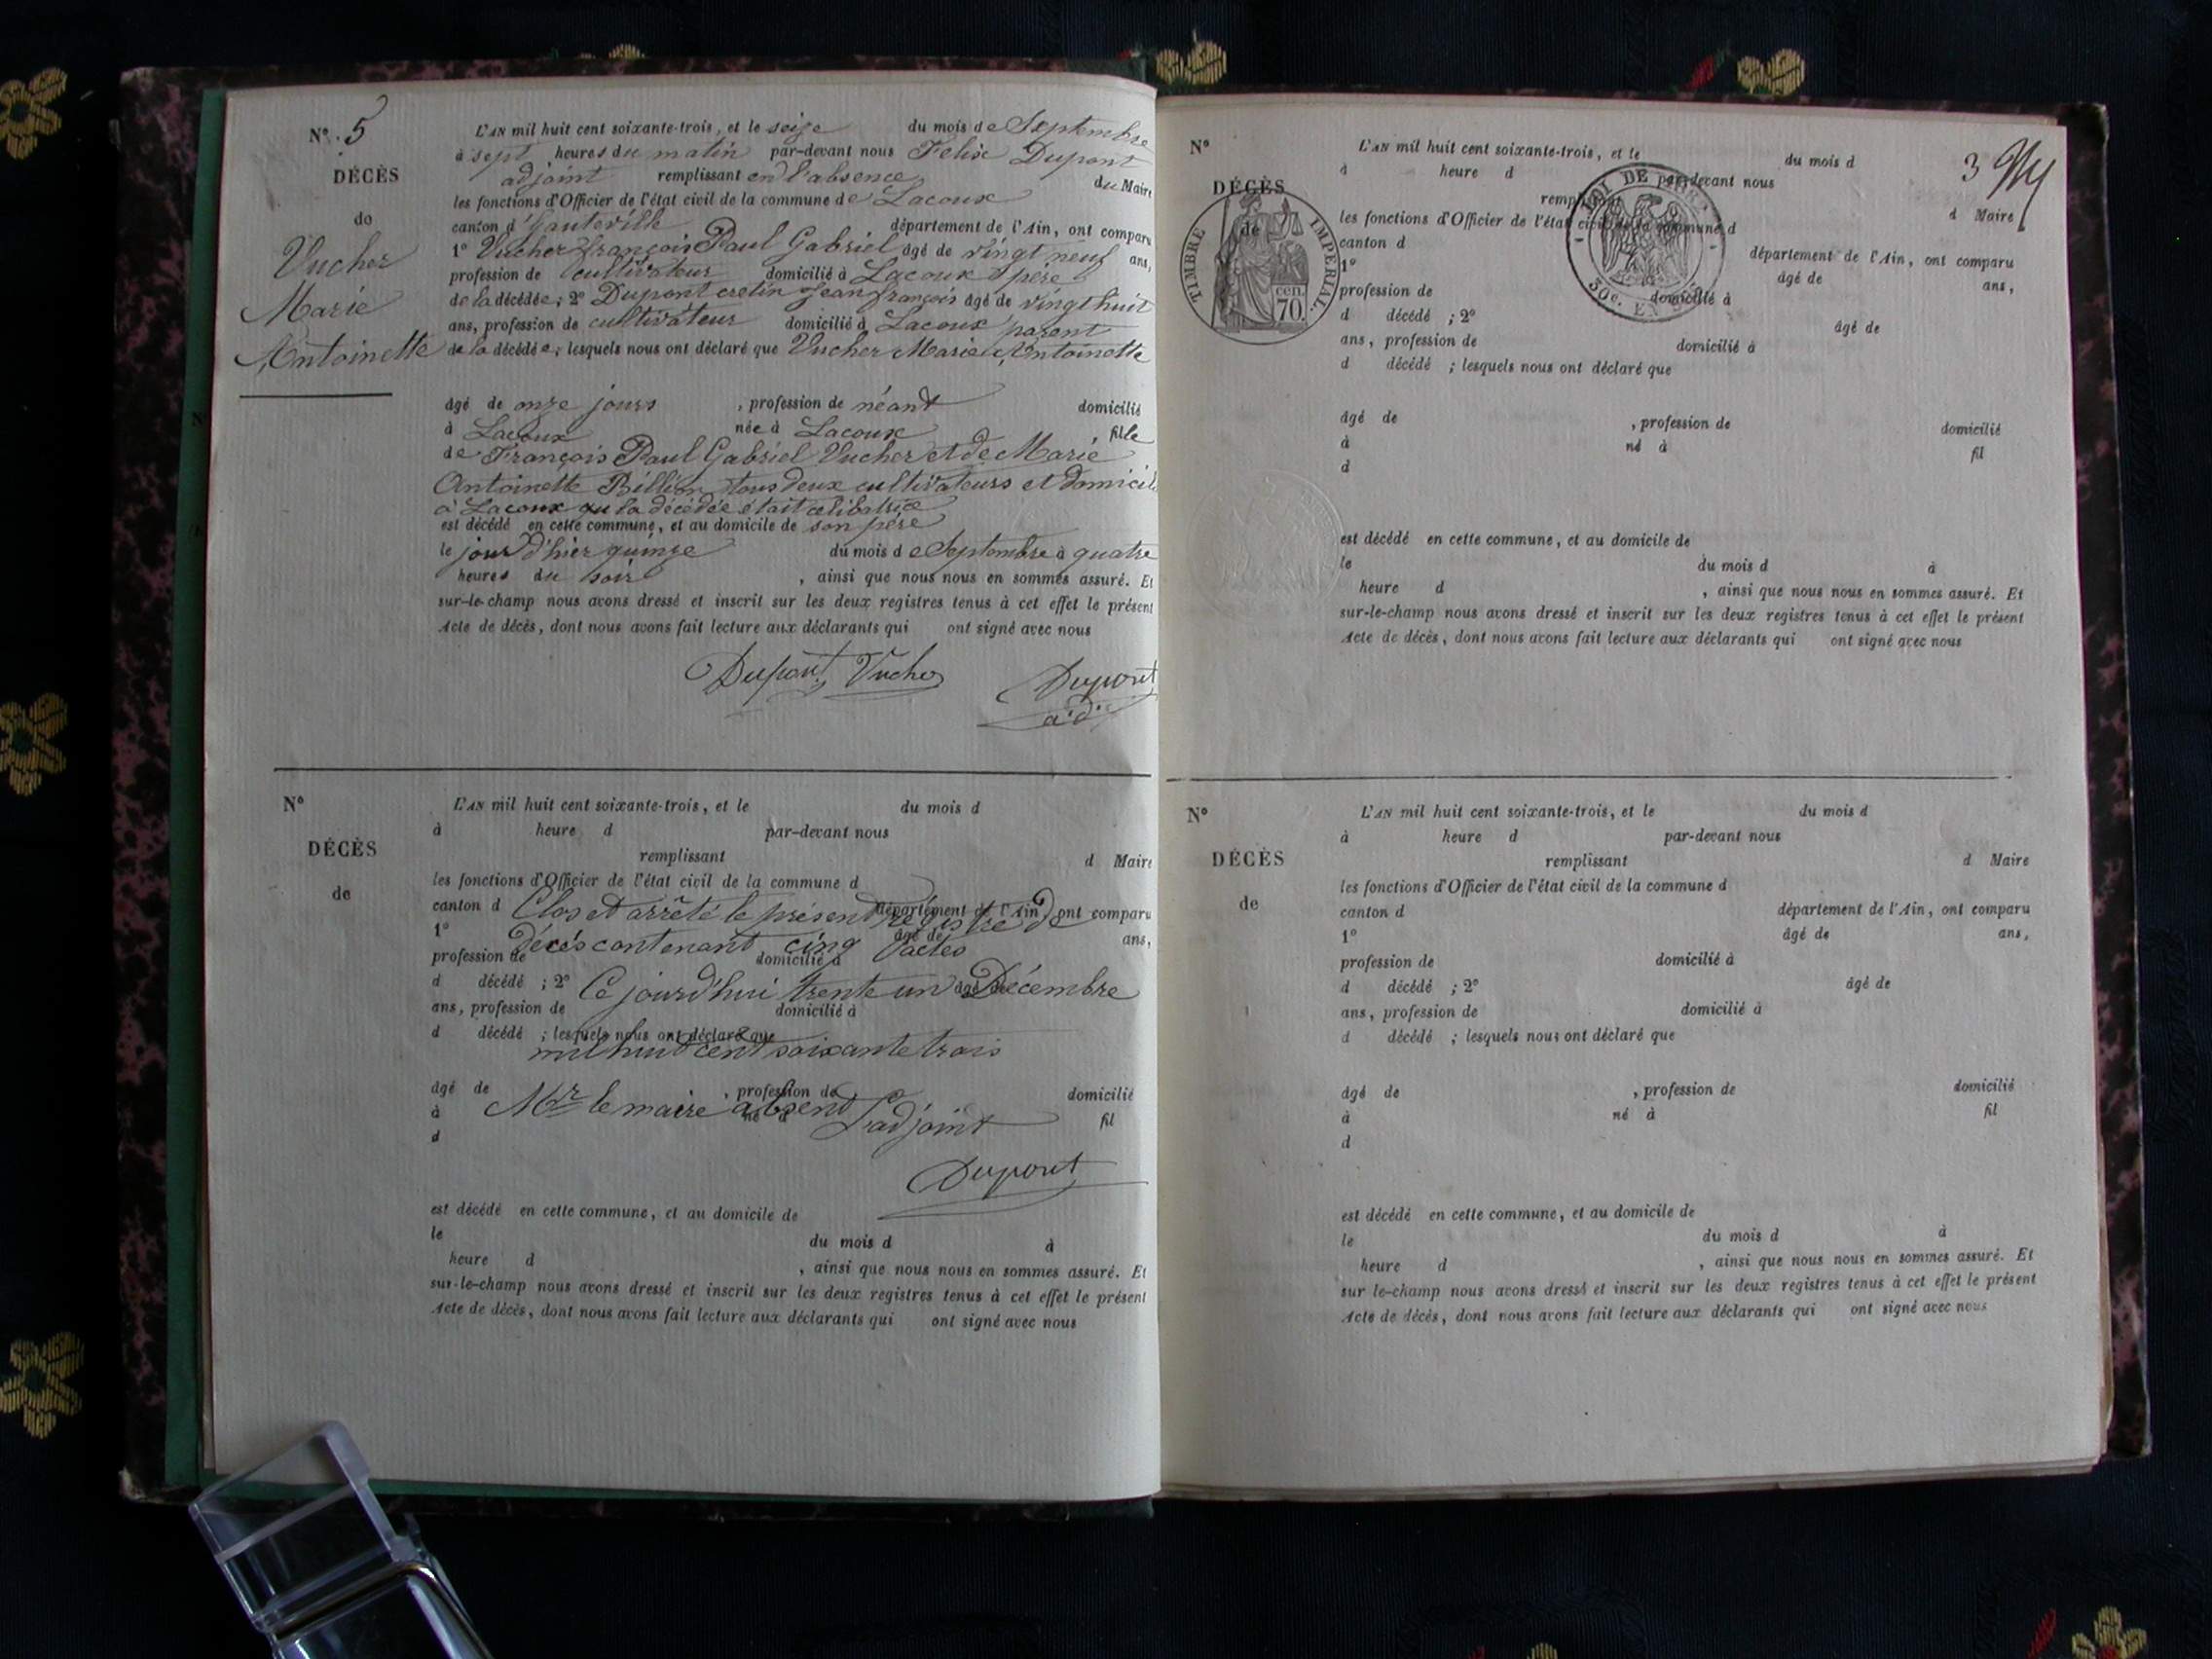 N° 5
DÉCÈS
de
Vucher
Marie
Antoinette
L'AN mil huit cent soixante-trois, et le seize du mois de Septembre
à sept heures du matin par-devant nous Felix Dupont
adjoint remplissant en l'absence du Maire
les fonctions d'Officier de l'état civil de la commune de Lacoux
canton d'hauteville département de l'Ain, ont comparu
1° Vucher françois Paul Gabriel âgé de vingt neuf ans,
profession de cultivateur domicilié à Lacoux père
de la décédée; 2° Dupont cretin Jean françois âgé de vingt huit
ans, profession de cultivateur domicilié à Lacoux parent
de la décédée; lesquels nous ont déclaré que Vucher Marie Antoinette
âgé de onze jours, profession de néant domicilié
à Lacoux née à Lacoux, fille
de François Paul Gabriel Vucher et de Marie
Antoinette Billion tous deux cultivateurs et domicil
à Lacoux qu la décédée était celibatrice
est décédé en cette commune, et au domicile de son père
le jour d'hier quinze du mois de Septembre à quatre
heures du soir, ainsi que nous nous en sommes assuré. Et
sur-le-champ nous avons dressé et inscrit sur les deux registres tenus à cet effet le présent
Acte de décès, dont nous avons fait lecture aux déclarants qui ont signé avec nous
Dupont Vucher Dupont
ad.
N°
DÉCÈS
de
L'AN mil huit cent soixante-trois, et le du mois d
à heure d par-devant nous
remplissant d Maire
les fonctions d'Officier de l'état civil de la commune d
canton d département de l'Ain, ont comparu
Clos et arrêté le présent registre de
1° âgé de ans,
Décès contenant cinq actes
profession de domicilié à
d décédé ; 2° âgé de
Ce jourd'hui trente un Décembre
ans, profession de domicilié à
d décédé ; lesquels nous ont déclaré que
mil huit cent soixante trois
âgé de , profession de domicilié
Mr le maire absent L'adjoint
à né à fil
d
Dupont
est décédé en cette commune, et au domicile de
le du mois d à
heure d , ainsi que nous nous en sommes assuré. Et
sur-le-champ nous avons dressé et inscrit sur les deux registres tenus à cet effet le présent
Acte de décès, dont nous avons fait lecture aux déclarants qui ont signé avec nous
3
N°
DÉCÈS
de
TIMBRE IMPÉRIAL
cen.
70.
L'AN mil huit cent soixante-trois, et le du mois d
à heure d par-devant nous
remplissant d Maire
les fonctions d'Officier de l'état civil de la commune d
canton d département de l'Ain, ont comparu
1° âgé de ans,
profession de domicilié à
d décédé ; 2° âgé de
ans, profession de domicilié à
d décédé ; lesquels nous ont déclaré que
âgé de , profession de domicilié
à né à fil
d
est décédé en cette commune, et au domicile de
le du mois d à
heure d , ainsi que nous nous en sommes assuré. Et
sur-le-champ nous avons dressé et inscrit sur les deux registres tenus à cet effet le présent
Acte de décès, dont nous avons fait lecture aux déclarants qui ont signé avec nous
N°
DÉCÈS
de
L'AN mil huit cent soixante-trois, et le du mois d
à heure d par-devant nous
remplissant d Maire
les fonctions d'Officier de l'état civil de la commune d
canton d département de l'Ain, ont comparu
1° âgé de ans,
profession de domicilié à
d décédé ; 2° âgé de
ans, profession de domicilié à
d décédé ; lesquels nous ont déclaré que
âgé de , profession de domicilié
à né à fil
d
est décédé en cette commune, et au domicile de
le du mois d à
heure d , ainsi que nous nous en sommes assuré. Et
sur le-champ nous avons dressé et inscrit sur les deux registres tenus à cet effet le présent
Acte de décès, dont nous avons fait lecture aux déclarants qui ont signé avec nous